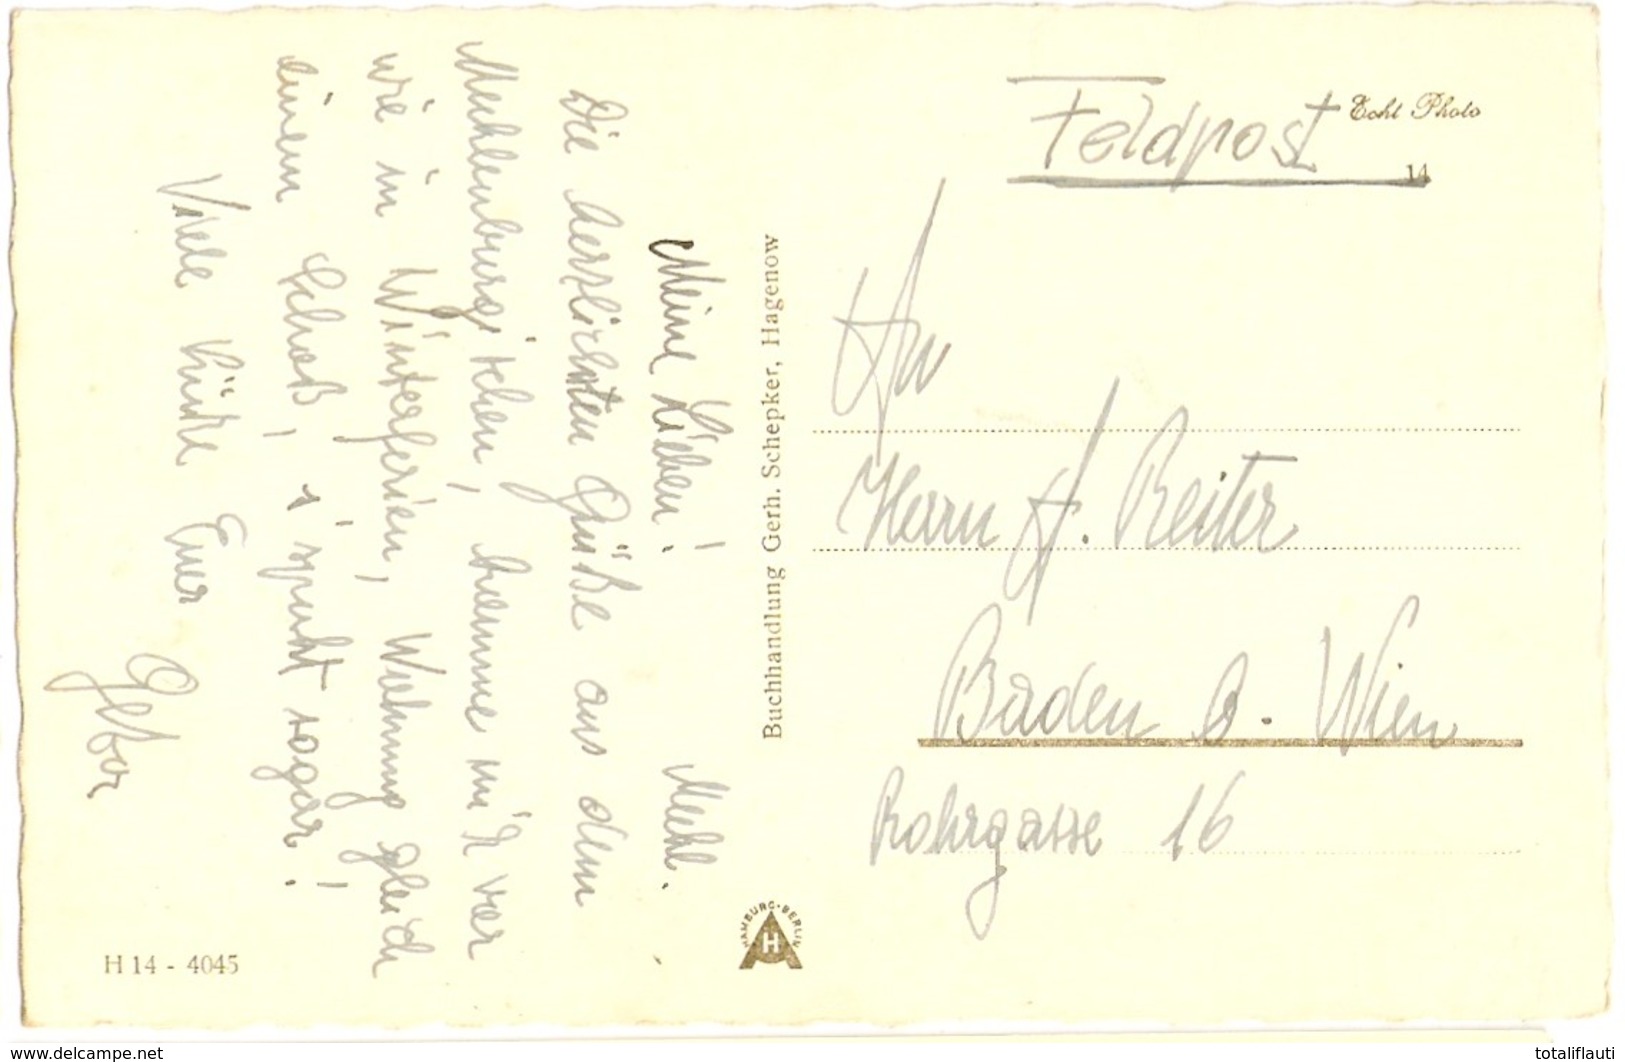 Meine Lieben! Meckl.
Die herzlichsten Grüße aus dem
Mecklenburgischen, komme mir vor
wie in Winterferien, Wohnung gleich
einem Schloß, 's spukt sogar!
Viele Küsse Euer
Buchhandlung Gerh. Schepker, Hagenow
HAMBURG-BERLIN
H
H 14 - 4045
Feldpost
Echt Photo
14
An
Herrn A. Reiter
Baden b. Wien
Rohrgasse 16
www.delcampe.net
totaliflauti